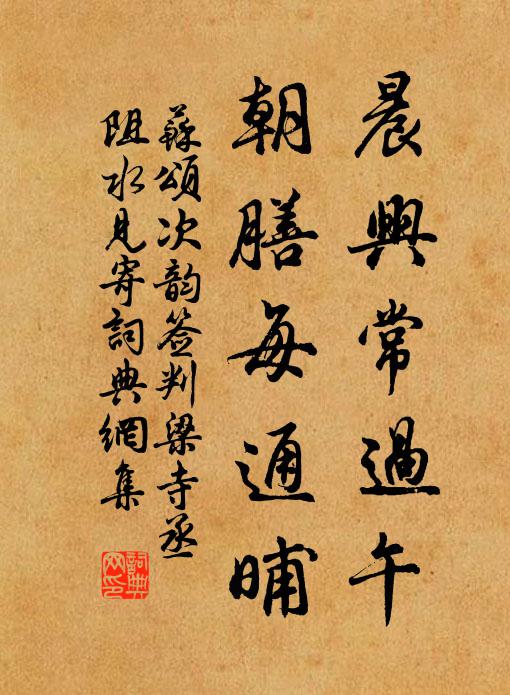 晨興常過午
朝膳每通晡
蘇頌次韵簽判梁寺丞
阻水見寄詞典網集
詞典
网印